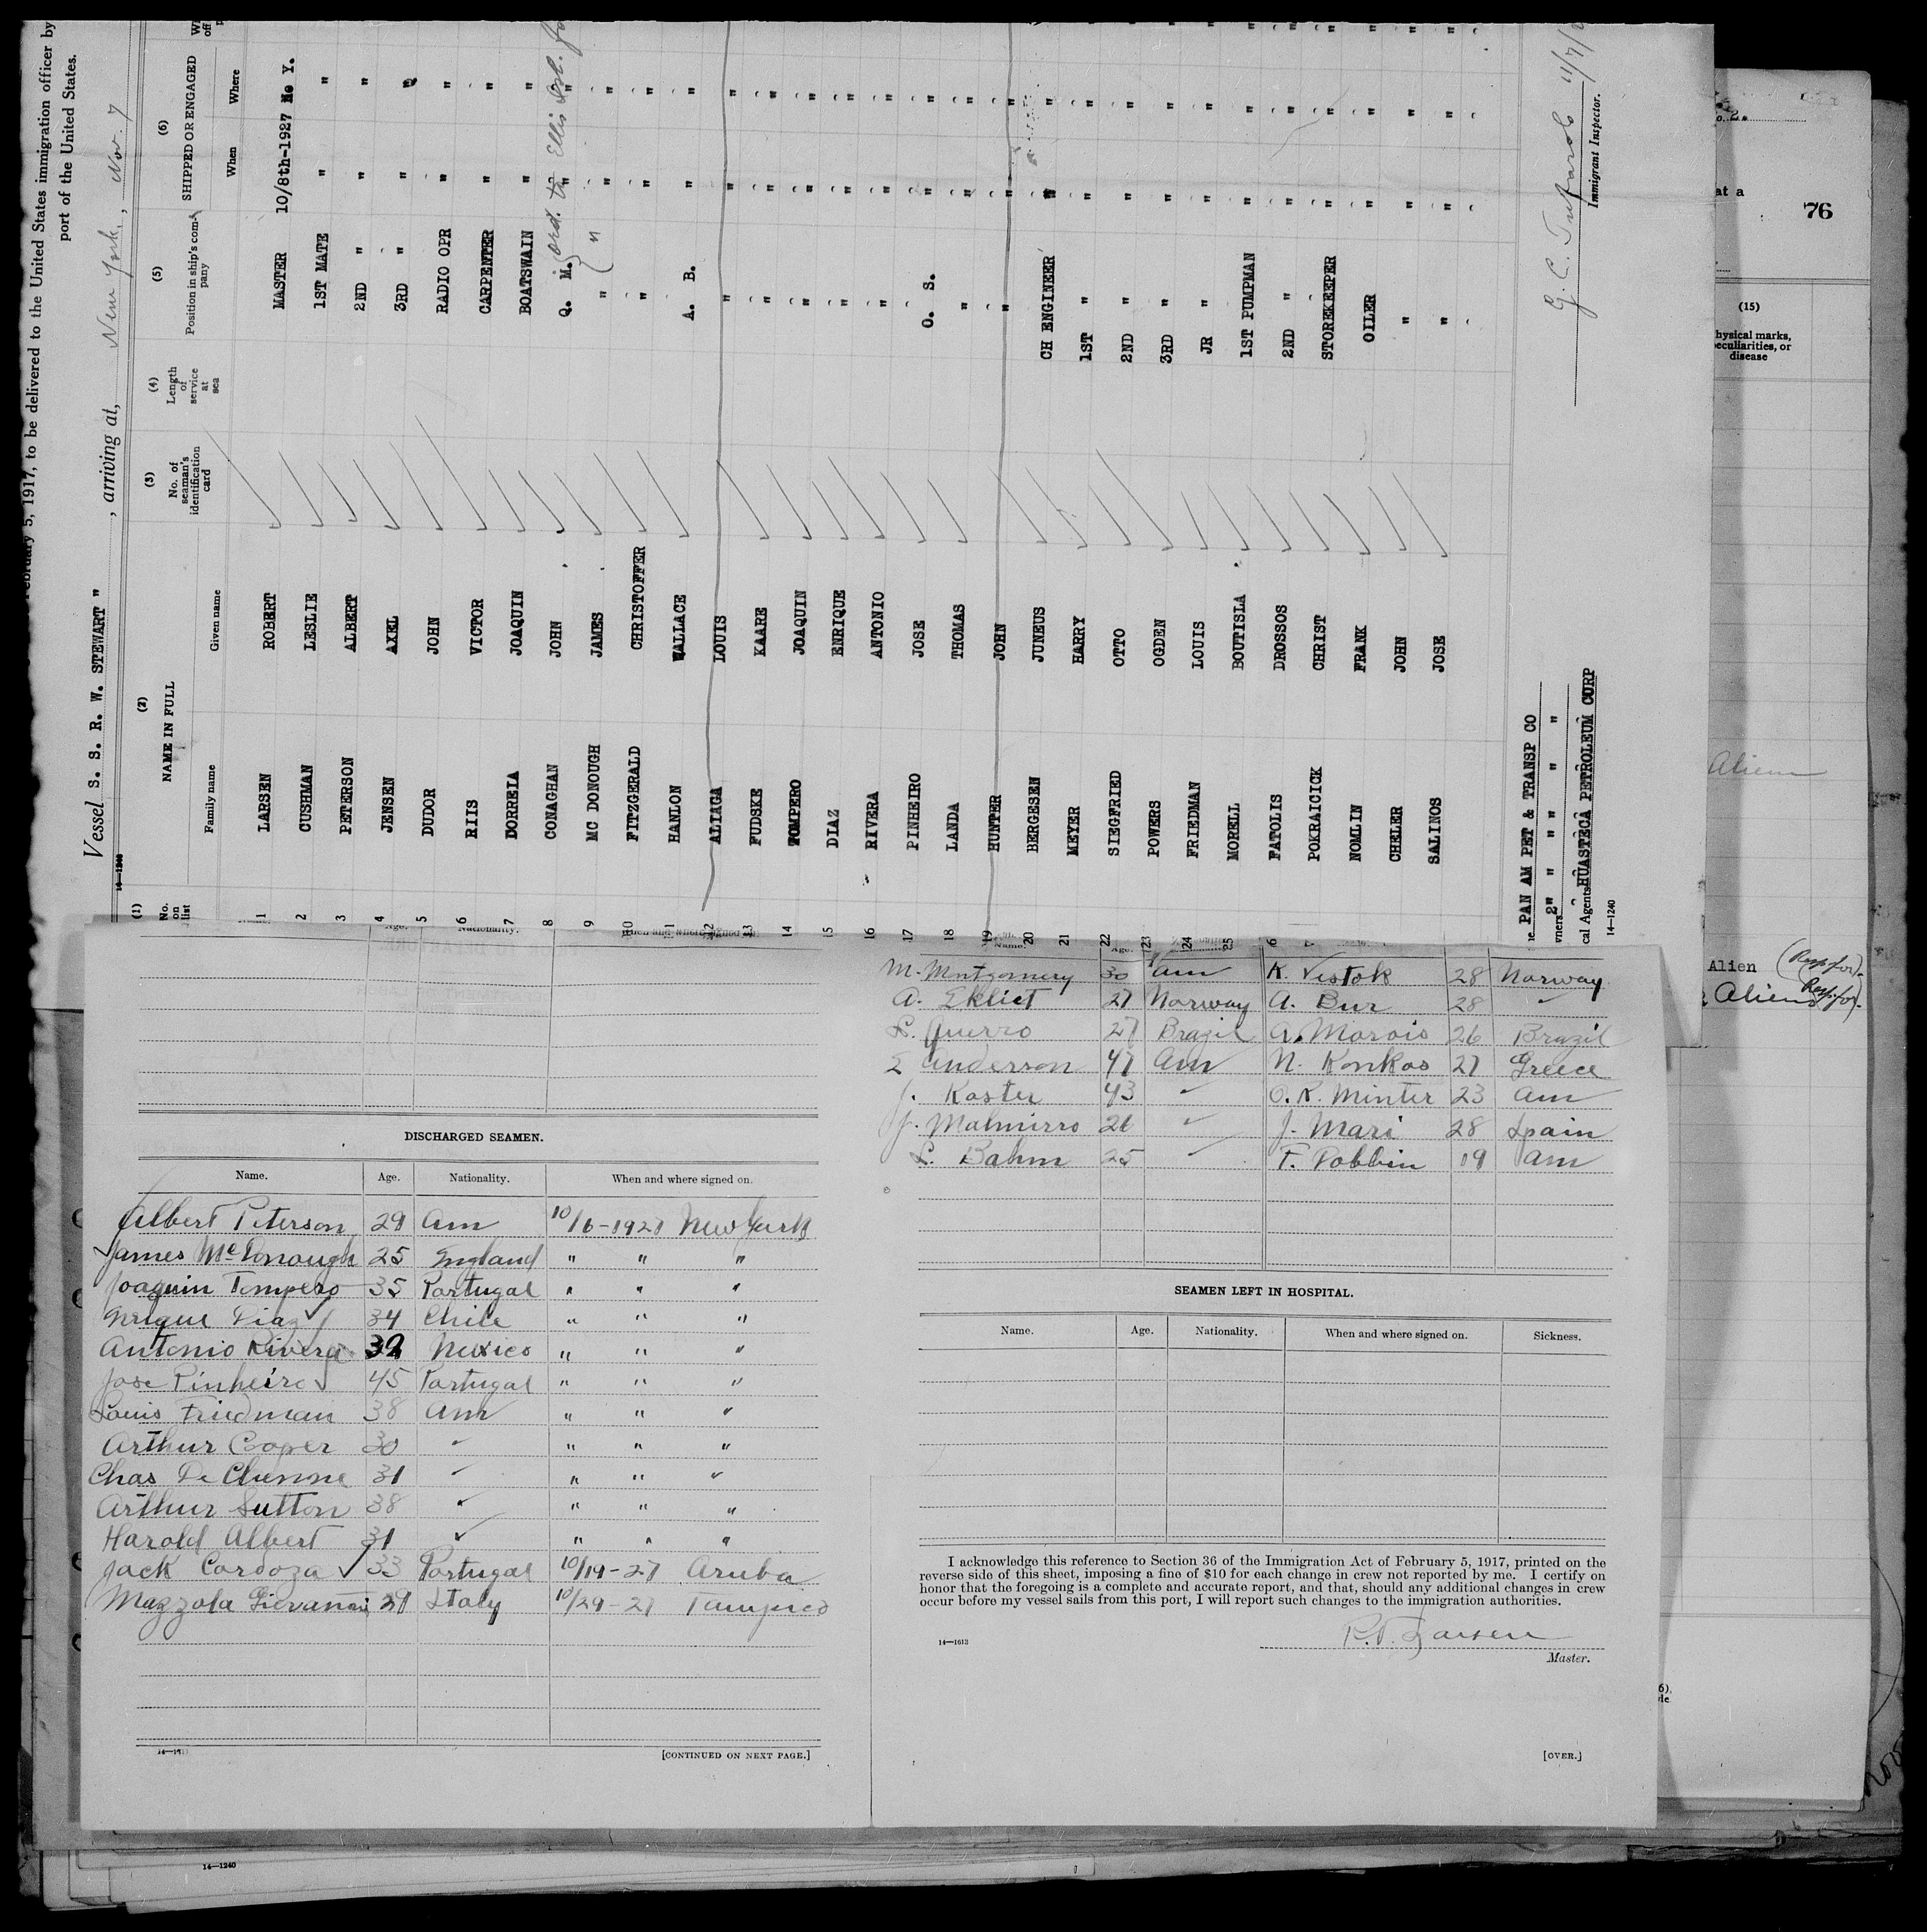 February 5, 1917, to be delivered to the United States immigration officer by
port of the United States.
Vessel S. S. R. W. STEWART " , arriving at, New York, , Nov. 7
14—1240
(1) (2) (3) (4) (5) (6)
No. on list NAME IN FULL No. of seaman's identification card Length of service at sea Position in ship's company SHIPPED OR ENGAGED
Family name Given name When Where
1 LARSEN ROBERT MASTER 10/8th-1927 Ne Y.
2 CUSHMAN LESLIE 1ST MATE " "
3 PETERSON ALBERT 2ND " " "
4 JENSEN AXEL 3RD " " "
5 DUDOR JOHN RADIO OPR " "
6 RIIS VICTOR CARPENTER " "
7 DORREIA JOAQUIN BOATSWAIN " "
8 CONAGHAN JOHN Q. M. ord. to Ellis Isl.
9 MC DONOUGH JAMES " " " "
10 FITZGERALD CHRISTOFFER " " "
11 HANLON WALLACE A. B. " "
12 ALIAGA LOUIS " " "
13 FUDSKE KAARE " " "
14 TOMPERO JOAQUIN " " "
15 DIAZ ENRIQUE " " "
16 RIVERA ANTONIO " " "
17 PINHEIRO JOSE O. S. " "
18 LANDA THOMAS " " "
19 HUNTER JOHN " " "
20 BERGESEN JUNEUS CH ENGINEER " "
21 MEYER HARRY 1ST " " "
22 SIEGFRIED OTTO 2ND " " "
23 POWERS OGDEN 3RD " " "
24 FRIEDMAN LOUIS JR " " "
25 MORELL BOUTISLA 1ST PUMPMAN " "
FATOLIS DROSSOS 2ND " " "
POKRAICICK CHRIST STOREKEEPER " "
NOMLIN FRANK OILER " "
CHELER JOHN " " "
SALINOS JOSE " " "
PAN AM PET & TRANSP CO
2" " " " " "
cal Agents HUASTECA PETROLEUM CORP
14—1240
Immigrant Inspector.
11/7/2
at a
76
(15)
hysical marks, peculiarities, or disease
Alien
Alien (Resp for)
Alien (Resp. for)
Age. Nationality. When and where signed on.
DISCHARGED SEAMEN.
Name. Age. Nationality. When and where signed on.
Albert Peterson 29 Am 10/6-1927 New York
James McDonough 25 England " " "
Joaquin Tompero 35 Portugal " " "
Diaz 34 Chile " " "
Antonio Rivera 32 Mexico " " "
Jose Pinheiro 45 Portugal " " "
Louis Friedman 38 Am " " "
Arthur Cooper 30 " " " "
Chas De Chenne 31 " " " "
Arthur Sutton 38 " " " "
Harold Albert 31 " " " "
Jack Cordoza 33 Portugal 10/19-27 Aruba
Mazzola Giovanni 29 Italy 10/29-27 Tampico
[CONTINUED ON NEXT PAGE.]
Name. Age.
M. Mntgomery 30 Am K. Vestok 28 Norway
A. Ekliet 27 Norway A. Bur 28 "
L. Guerro 27 Brazil A. Marois 26 Brazil
E Anderson 47 Am N. Konkos 27 Greece
J. Koster 43 " O. K. Minter 23 Am
J. Malmirro 26 " J. Mari 28 Spain
L. Bahm 25 " F. Pobbin 19 Am
SEAMEN LEFT IN HOSPITAL.
Name. Age. Nationality. When and where signed on. Sickness.
I acknowledge this reference to Section 36 of the Immigration Act of February 5, 1917, printed on the
reverse side of this sheet, imposing a fine of $10 for each change in crew not reported by me. I certify on
honor that the foregoing is a complete and accurate report, and that, should any additional changes in crew
occur before my vessel sails from this port, I will report such changes to the immigration authorities.
14—1613
R. Larsen
Master.
[OVER.]
14—1240